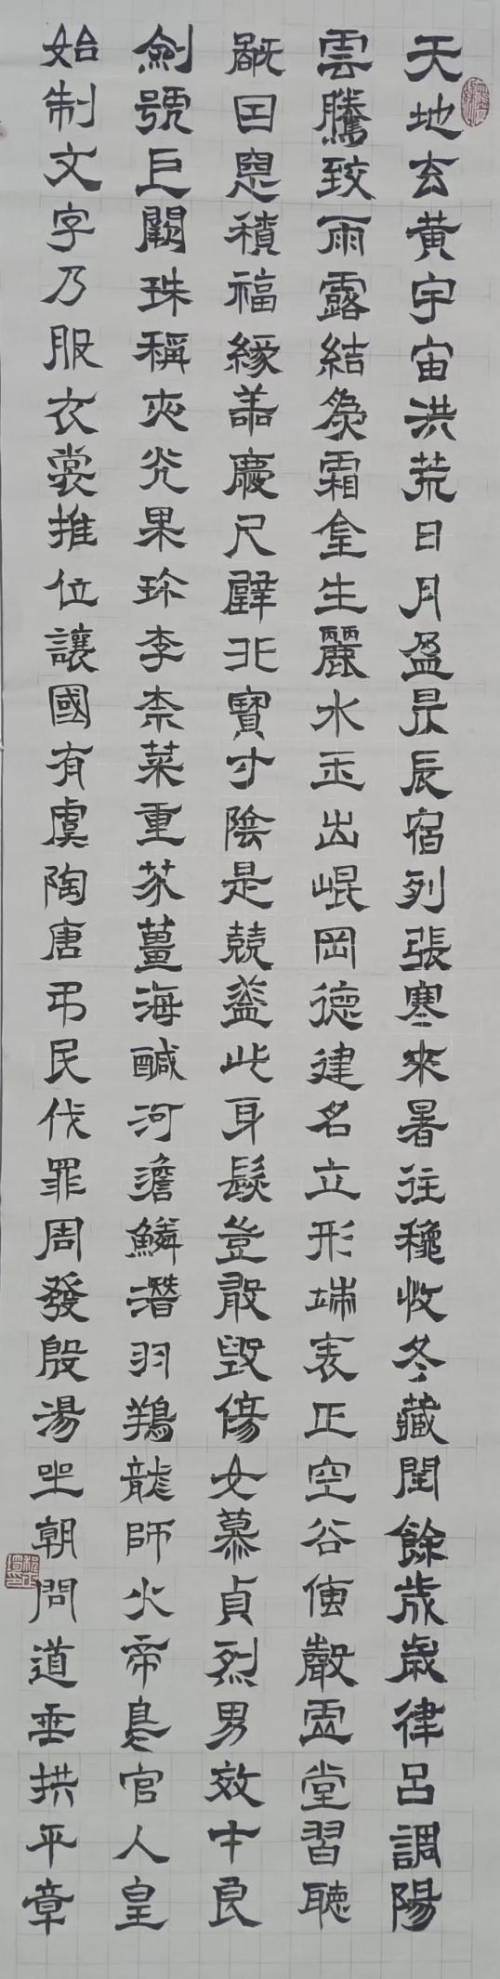 天地玄黃宇宙洪荒日月盈昃辰宿列張寒來暑往穐收冬藏閏餘成歲律呂調陽
雲騰致雨露結爲霜金生麗水玉出崐岡德建名立形端表正空谷傳聲虛堂習聽
旤囙惡積福緣善慶尺璧非寶寸陰是競蓋此身髮豈敢毀傷女慕貞烈男效才良
劍號巨闕珠稱夜光果珍李柰菜重芥薑海鹹河澹鱗潛羽鴹龍師火帝鳥官人皇
始制文字乃服衣裳推位讓國有虞陶唐弔民伐罪周發殷湯坐朝問道垂拱平章